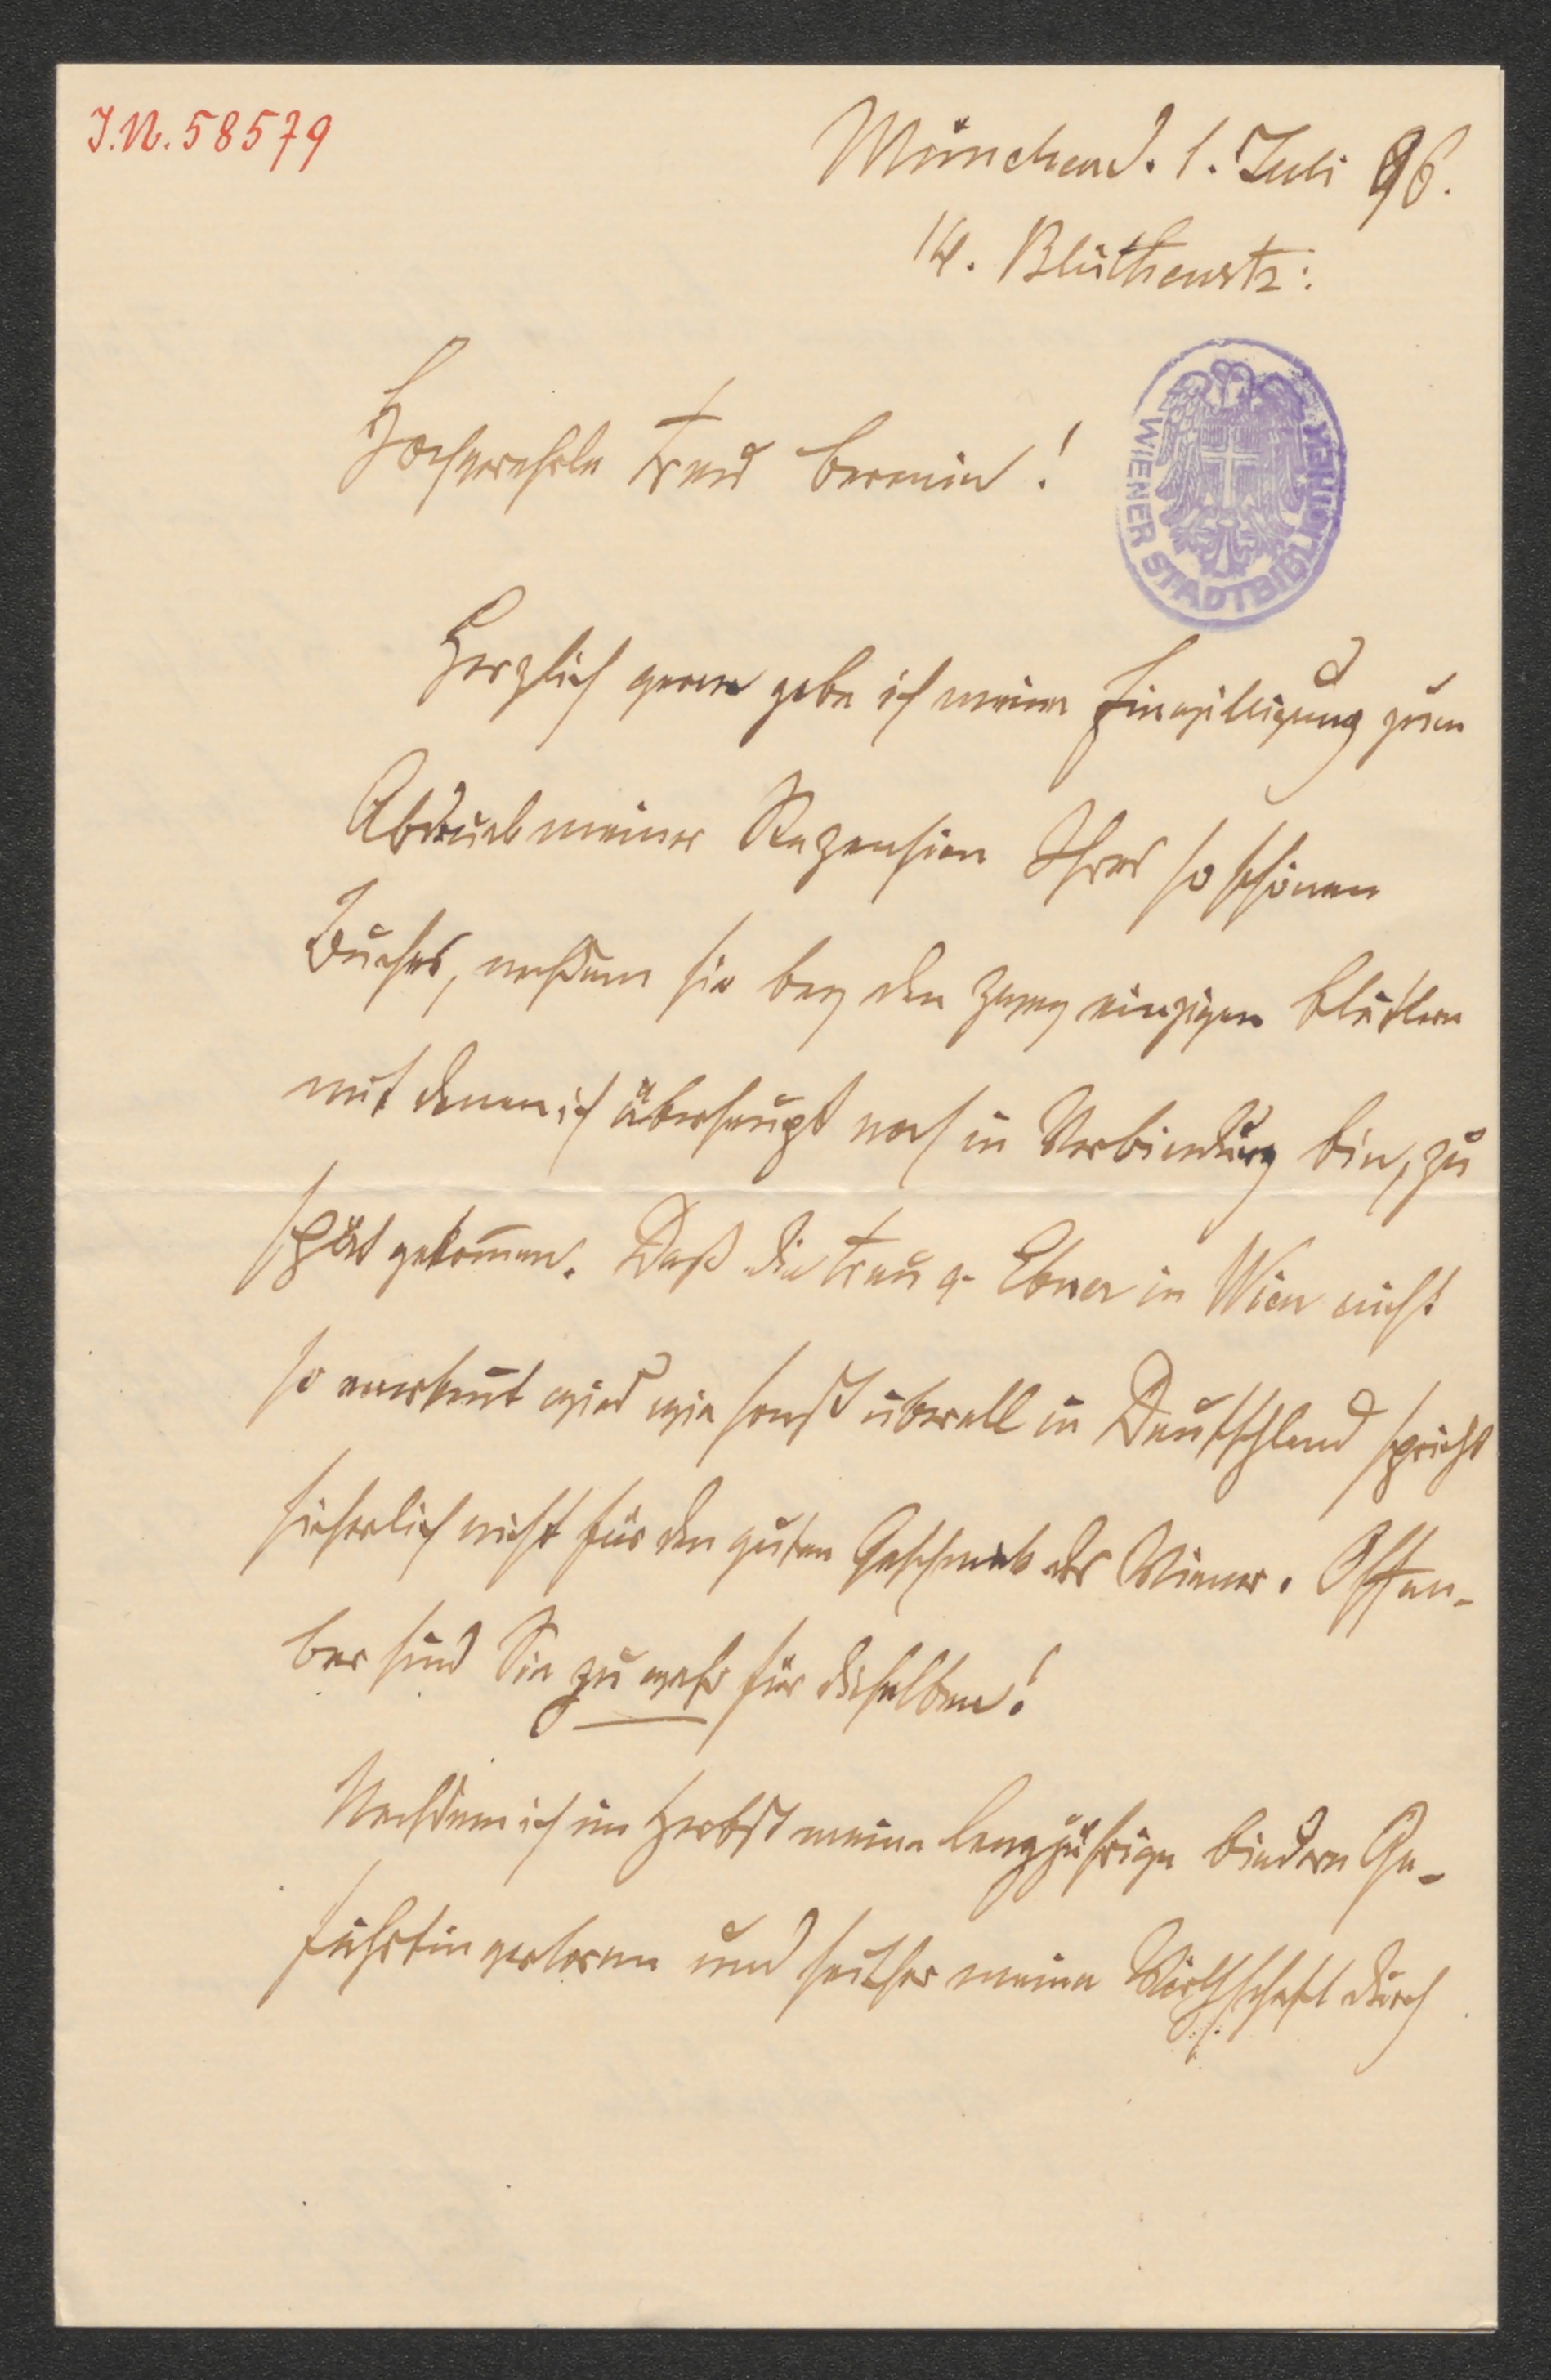 I.N. 58579
München d. 1. Juli 96.
14. Blüthenstr:
WIENER STADTBIBLIOTHEK
Hochverehrte Frau Baronin!
Herzlich gerne gebe ich meine Einwilligung zum
Abdruck meiner Rezension Ihres so schönen
Buches, nachdem sie bey den zwey einzigen Blättern
mit denen ich überhaupt noch in Verbindung bin, zu
spät gekom̅en. Daß die Frau v. Ebner in Wien nicht
so anerkan̅t wird wie sonst überall in Deutschland spricht
sicherlich nicht für den guten Geschmack der Wiener. Offen-
bar sind Sie zu wahr für dieselben!
Nachdem ich im Herbst meine langjährige Gefährtin Ge-
fährtin verloren und seither meine Wirthschaft durch